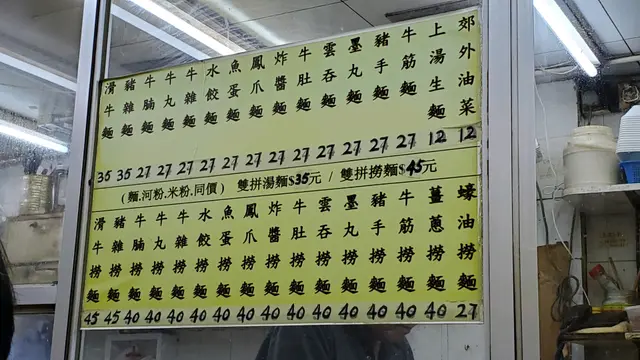 郊外油菜 12
上湯生麵 12
牛筋麵 27
豬手麵 27
墨丸麵 27
雲吞麵 27
牛肚麵 27
炸醬麵 27
鳳爪麵 27
魚蛋麵 27
水餃麵 27
牛雜麵 27
牛丸麵 27
牛腩麵 27
豬雜麵 35
滑牛麵 35
(麵.河粉.米粉.同價) 雙拼湯麵$35元 / 雙拼撈麵$45元
蠔油撈麵 27
薑蔥撈麵 40
牛筋撈麵 40
豬手撈麵 40
墨丸撈麵 40
雲吞撈麵 40
牛肚撈麵 40
鳳爪撈麵 40
魚蛋撈麵 40
水餃撈麵 40
牛雜撈麵 40
牛丸撈麵 40
牛腩撈麵 40
豬雜撈麵 45
滑牛撈麵 45